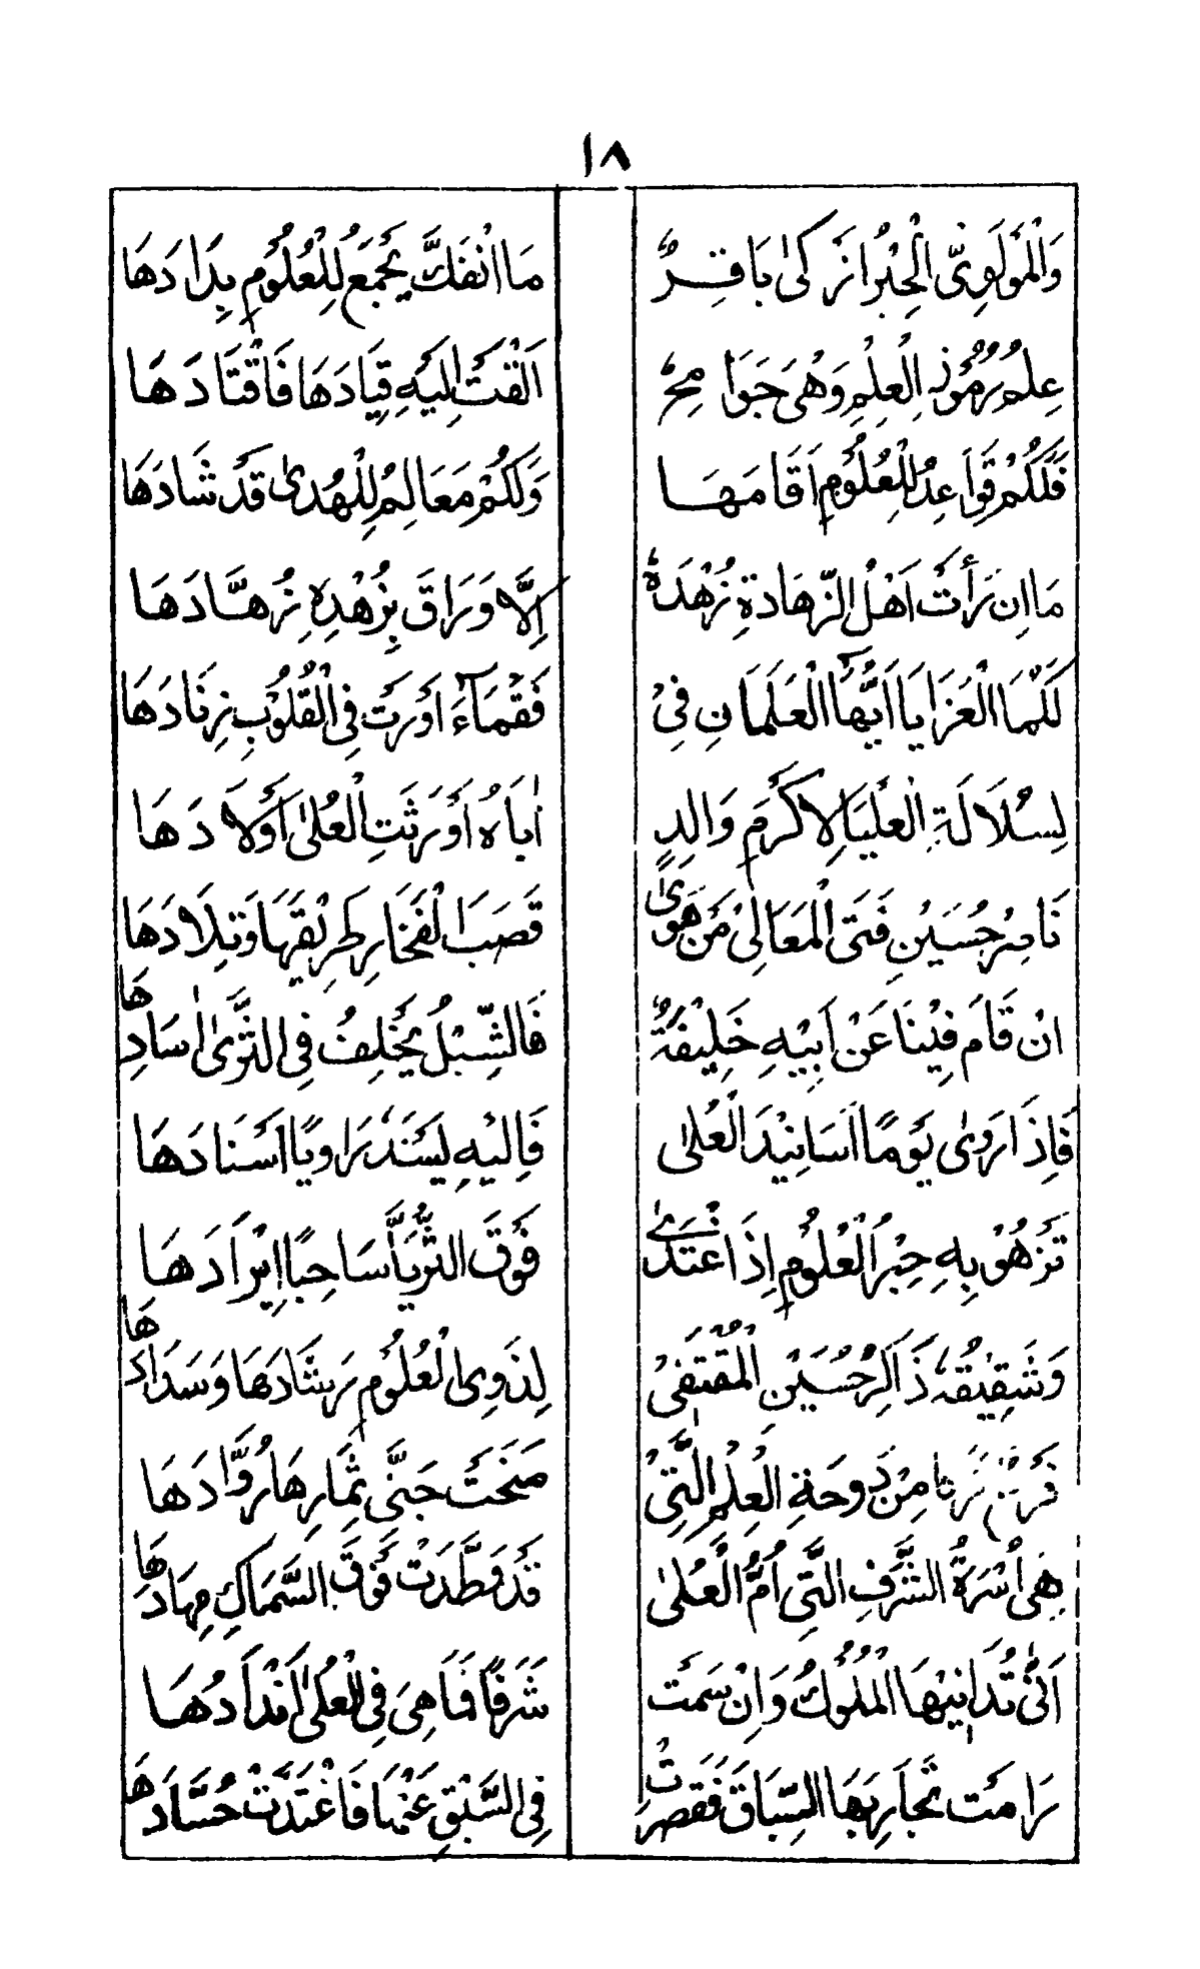 ١٨
وَالْمَوْلَوِيّ الْحِبْرُ ازَكىٰ بَاقِرٌ مَا انْفَكَّ يَجْمَعُ لِلْعُلُومِ بِدَادَهَا
عِلْمُ رُمُوْزِ الْعِلْمِ وَهْىَ جَوَامِحٌ اَلْقَتْ اِلَيْهِ قِيَادَهَا فَاقْتَادَهَا
فَلَكُمْ قَوَاعِدُ لِلْعُلُوْمِ اَقَامَهَا وَلَكُمْ مَعَالِمُ لِلْهُدىٰ قَدْ شَادَهَا
مَا اِن رَأَتْ اَهْلُ الزَّهَادَةِ زُهْدَهٗ اِلَّا وَرَاقَ بِزُهْدِهٖ زُهَّادَهَا
لَكُمَا الْعَزَايَا اَيُّهَا الْعَلَمَانِ فِىْ فَقْمَاءَ اَوْرَتْ فِى الْقُلُوْبِ زِنَادَهَا
لِسُلَالَةِ الْعَلْيَا لِاكْرَمِ وَالِدٍ اٰبَاهُ اَوْرَثَتِ الْعُلىٰ اَوْلَادَهَا
نَاصِرْ حُسَيْنِ فَتَى الْمَعَالِىْ مَنْ هَوىٰ قَصَبَ الْفَخَارِ طَرِيْقَهَا وَتِلَادَهَا
انْ قَامَ فِيْنَا عَنْ اَبِيْهِ خَلِيْفَةٌ فَالشِّبْلُ يَخْلِفُ فِى الثَّرىٰ اٰسَادَهَا
فَاِذَا رَوىٰ يَوْمًا اَسَانِيْدَ الْعُلىٰ فَاِلَيْهِ يَسْنَدُ رَاوِيًا اَسْنَادَهَا
تَزْهُوْ بِهٖ حِبْرُ الْعُلُوْمِ اِذَا غْتَدىٰ فَوْقَ الثُّرَيَّا سَاحِبًا اِبْرَادَهَا
وَشَقِيْقُهٗ ذَاكِرْ حُسَيْنِ الْمُقْتَفِىْ لِذَوِى الْعُلُوْمِ رَشَادَهَا وَسَدَادَهَا
مِنْ دَوحَةِ الْعِلْمِ الَّتِىْ مَنَحَتْ جَنَّى ثِمَارِهَا رُوَّادَهَا
هِىَ اُسْرَةُ الشَّرَفِ الَّتِى اُمُّ الْعُلىٰ قَدْ وَطَّدَتْ فَوْقَ السَّمَاكِ مِهَادَهَا
اَنّٰى تُدَانِيْهَا الْمُلُوْكُ وَاِنْ سَمَتْ شَرَفًا فَمَا هِىَ فِى الْعُلىٰ اَنْدَادُهَا
رَامَتْ تُجَارِيَهَا السِّبَاقَ فَقَصَّرَتْ فِى السَّبْقِ عَنْهَا فَاغْتَدَتْ حُسَّادَهَا